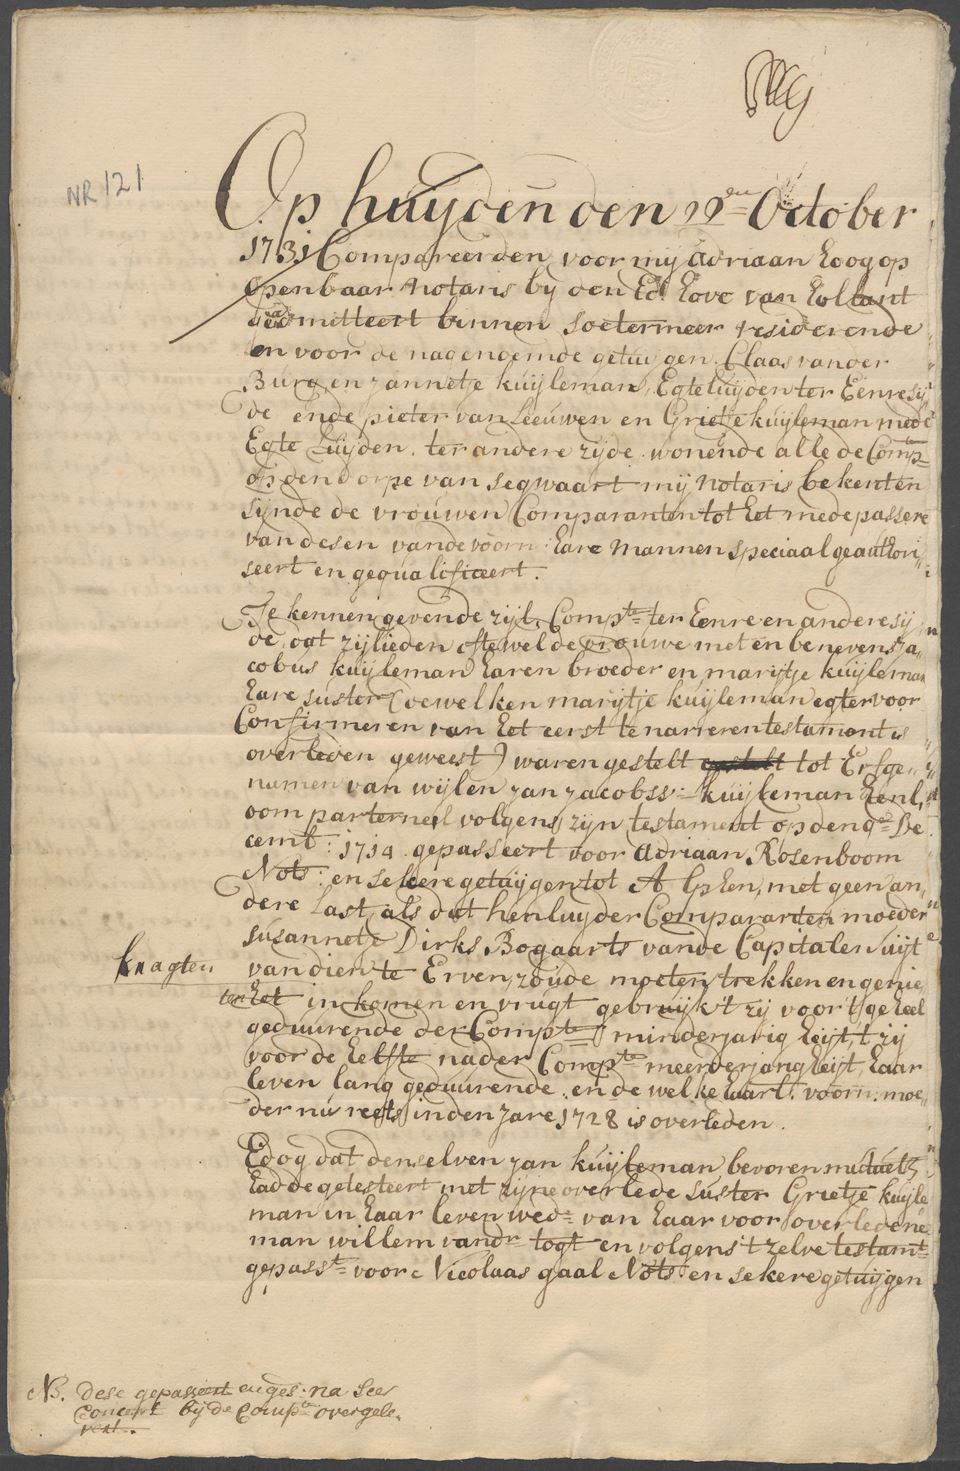 NR 121
Op huijden den 22en October
1731 Compareerden voor mij Adriaan Hoogop
openbaar Notaris bij den Ed. Hove van Hollant
geadmitteert binnen Soetermeer residerende
en voor de nagenoemde getuijgen Claas vander
Burg en Jannetje Kuijleman, Egteluijden ter Eenre sij
de ende pieter van Leeuwen en Grietje kuijleman mede
Egte Luijden ter andere zijde wonende alle de Compten
op den dorpe van Segwaart mij Notaris bekent en
sijnde de vrouwen Comparanten tot het mede passere
van desen van de voorn: hare Mannen speciaal geauthori
seert en gequalificeert.
Te kennen gevende zijl. Compten ter Eenre en andere sij
de, dat zijlieden oftewel de vrouwe met en benevens Ja
cobus kuijleman haren broeder en marijtje kuijleman
hare suster (dewelken marijtje kuijleman egter voor
Confirmeren van het eerst te narreren testament is
overleden geweest) waren gestelt tot Erfge
namen van wijlen Jan Jacobsz: kuijleman henl.
oom paterneel volgens zijn testament op den 9e De
cemb: 1714 gepasseert voor Adriaan Rosenboom
Nots: en sekere getuijgen tot Alphen, met geen an
dere Last, als dat henluijder Comparanten moeder
Susannetje Dirks Bogaarts vande Capitalen uijt
van dien te Erven zoude moeten trekken en genie
knagten
ten het inkomen en vrugt gebruijk 't zij voor 't geheel
geduurende der Compten minderjarigheijt, 't zij
voor de helfte na der Compten meerderjarigheijt, haar
leven lang geduurende, en de welke haarl. voorn: moe
der nu reets inden Jare 1728 is overleden.
Edog dat denselven Jan kuijleman bevoren mutuels
hadde getesteert met zijne overlede suster Grietje kuijle
man in haar leven wede van haar vooroverledene
man willem vandr togt en volgens 't zelve testamt
gepasst voor Nicolaas gaal Nots: en sekere getuijgen
NB. Dese gepasseert en ges: na het
Concept bij de Compten overgele
vert.